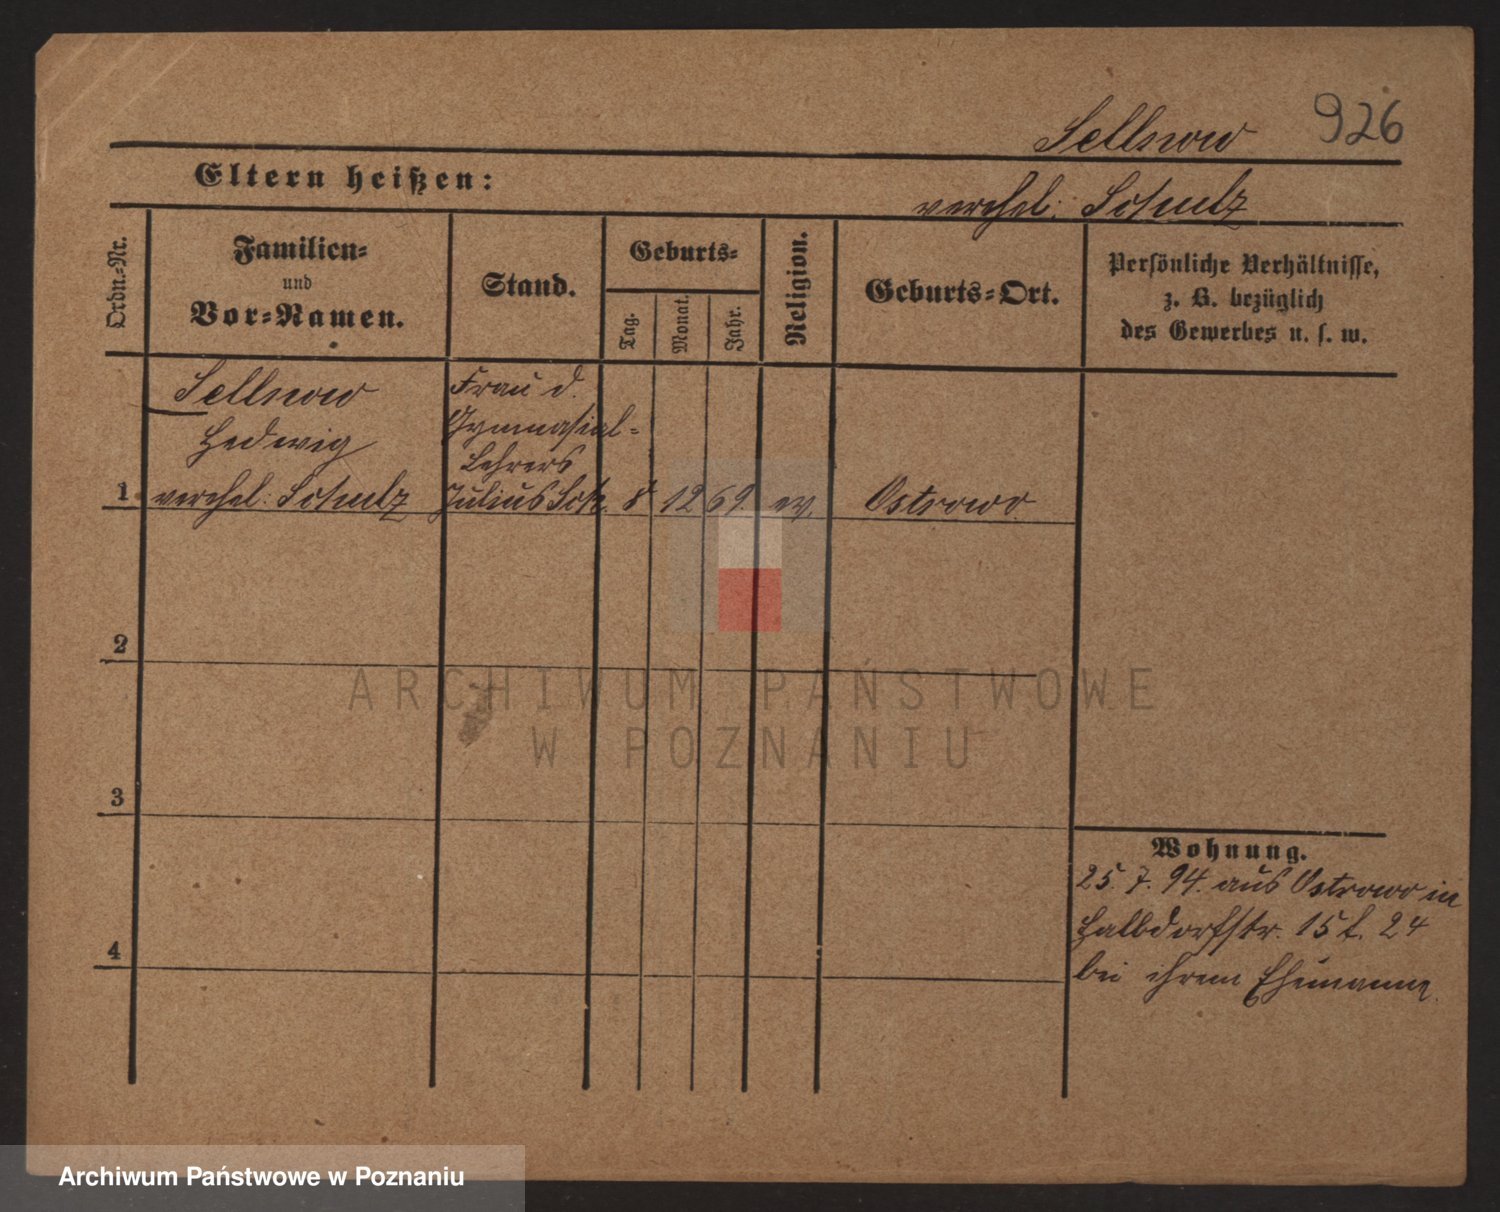 926
Sellnow
Eltern heißen:
verehel. Schulz
Ordn.-Nr.
Familien-
und
Vor-Namen.
Stand.
Geburts-
Tag.
Monat.
Jahr.
Religion.
Geburts-Ort.
Persönliche Verhältnisse,
z. B. bezüglich
des Gewerbes u. s. w.
Sellnow
Hedwig
1 verehel. Schulz
Frau d.
Gymnasial-
Lehrers
Julius Sch. 8 12 69. ev. Ostrowo
2
3
4
Wohnung.
25. 7. 94. aus Ostrowo in
Halbdorfstr. 15 b. 24
bei ihrem Ehemanne.
ARCHIWUM PAŃSTWOWE
W POZNANIU
Archiwum Państwowe w Poznaniu